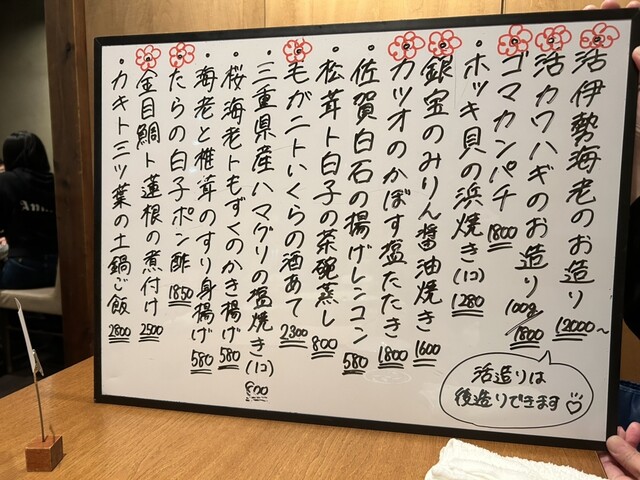 活伊勢海老のお造り 12000〜
活カワハギのお造り 100g 1800
ゴマカンパチ 1800
・ホッキ貝の浜焼き(1コ) 1280
銀宝のみりん醤油焼き 1600
カツオのかぼす塩たたき 1800
・佐賀白石の揚げレンコン 580
・松茸ト白子の茶碗蒸し 800
毛ガニトいくらの酒あて 2300
・三重県産ハマグリの塩焼き(1コ) 800
・桜海老トもずくのかき揚げ 580
・海老と椎茸のすり身揚げ 580
たらの白子ポン酢 1850
金目鯛ト蓮根の煮付け 2500
・カキト三ツ葉の土鍋ご飯 2800
活造りは
後造りできます